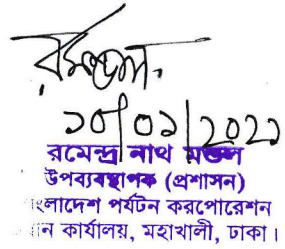 ১০/০১/২০২১
রমেন্দ্র নাথ মন্ডল
উপব্যবস্থাপক (প্রশাসন)
বাংলাদেশ পর্যটন করপোরেশন
কার্যালয়, মহাখালী, ঢাকা।